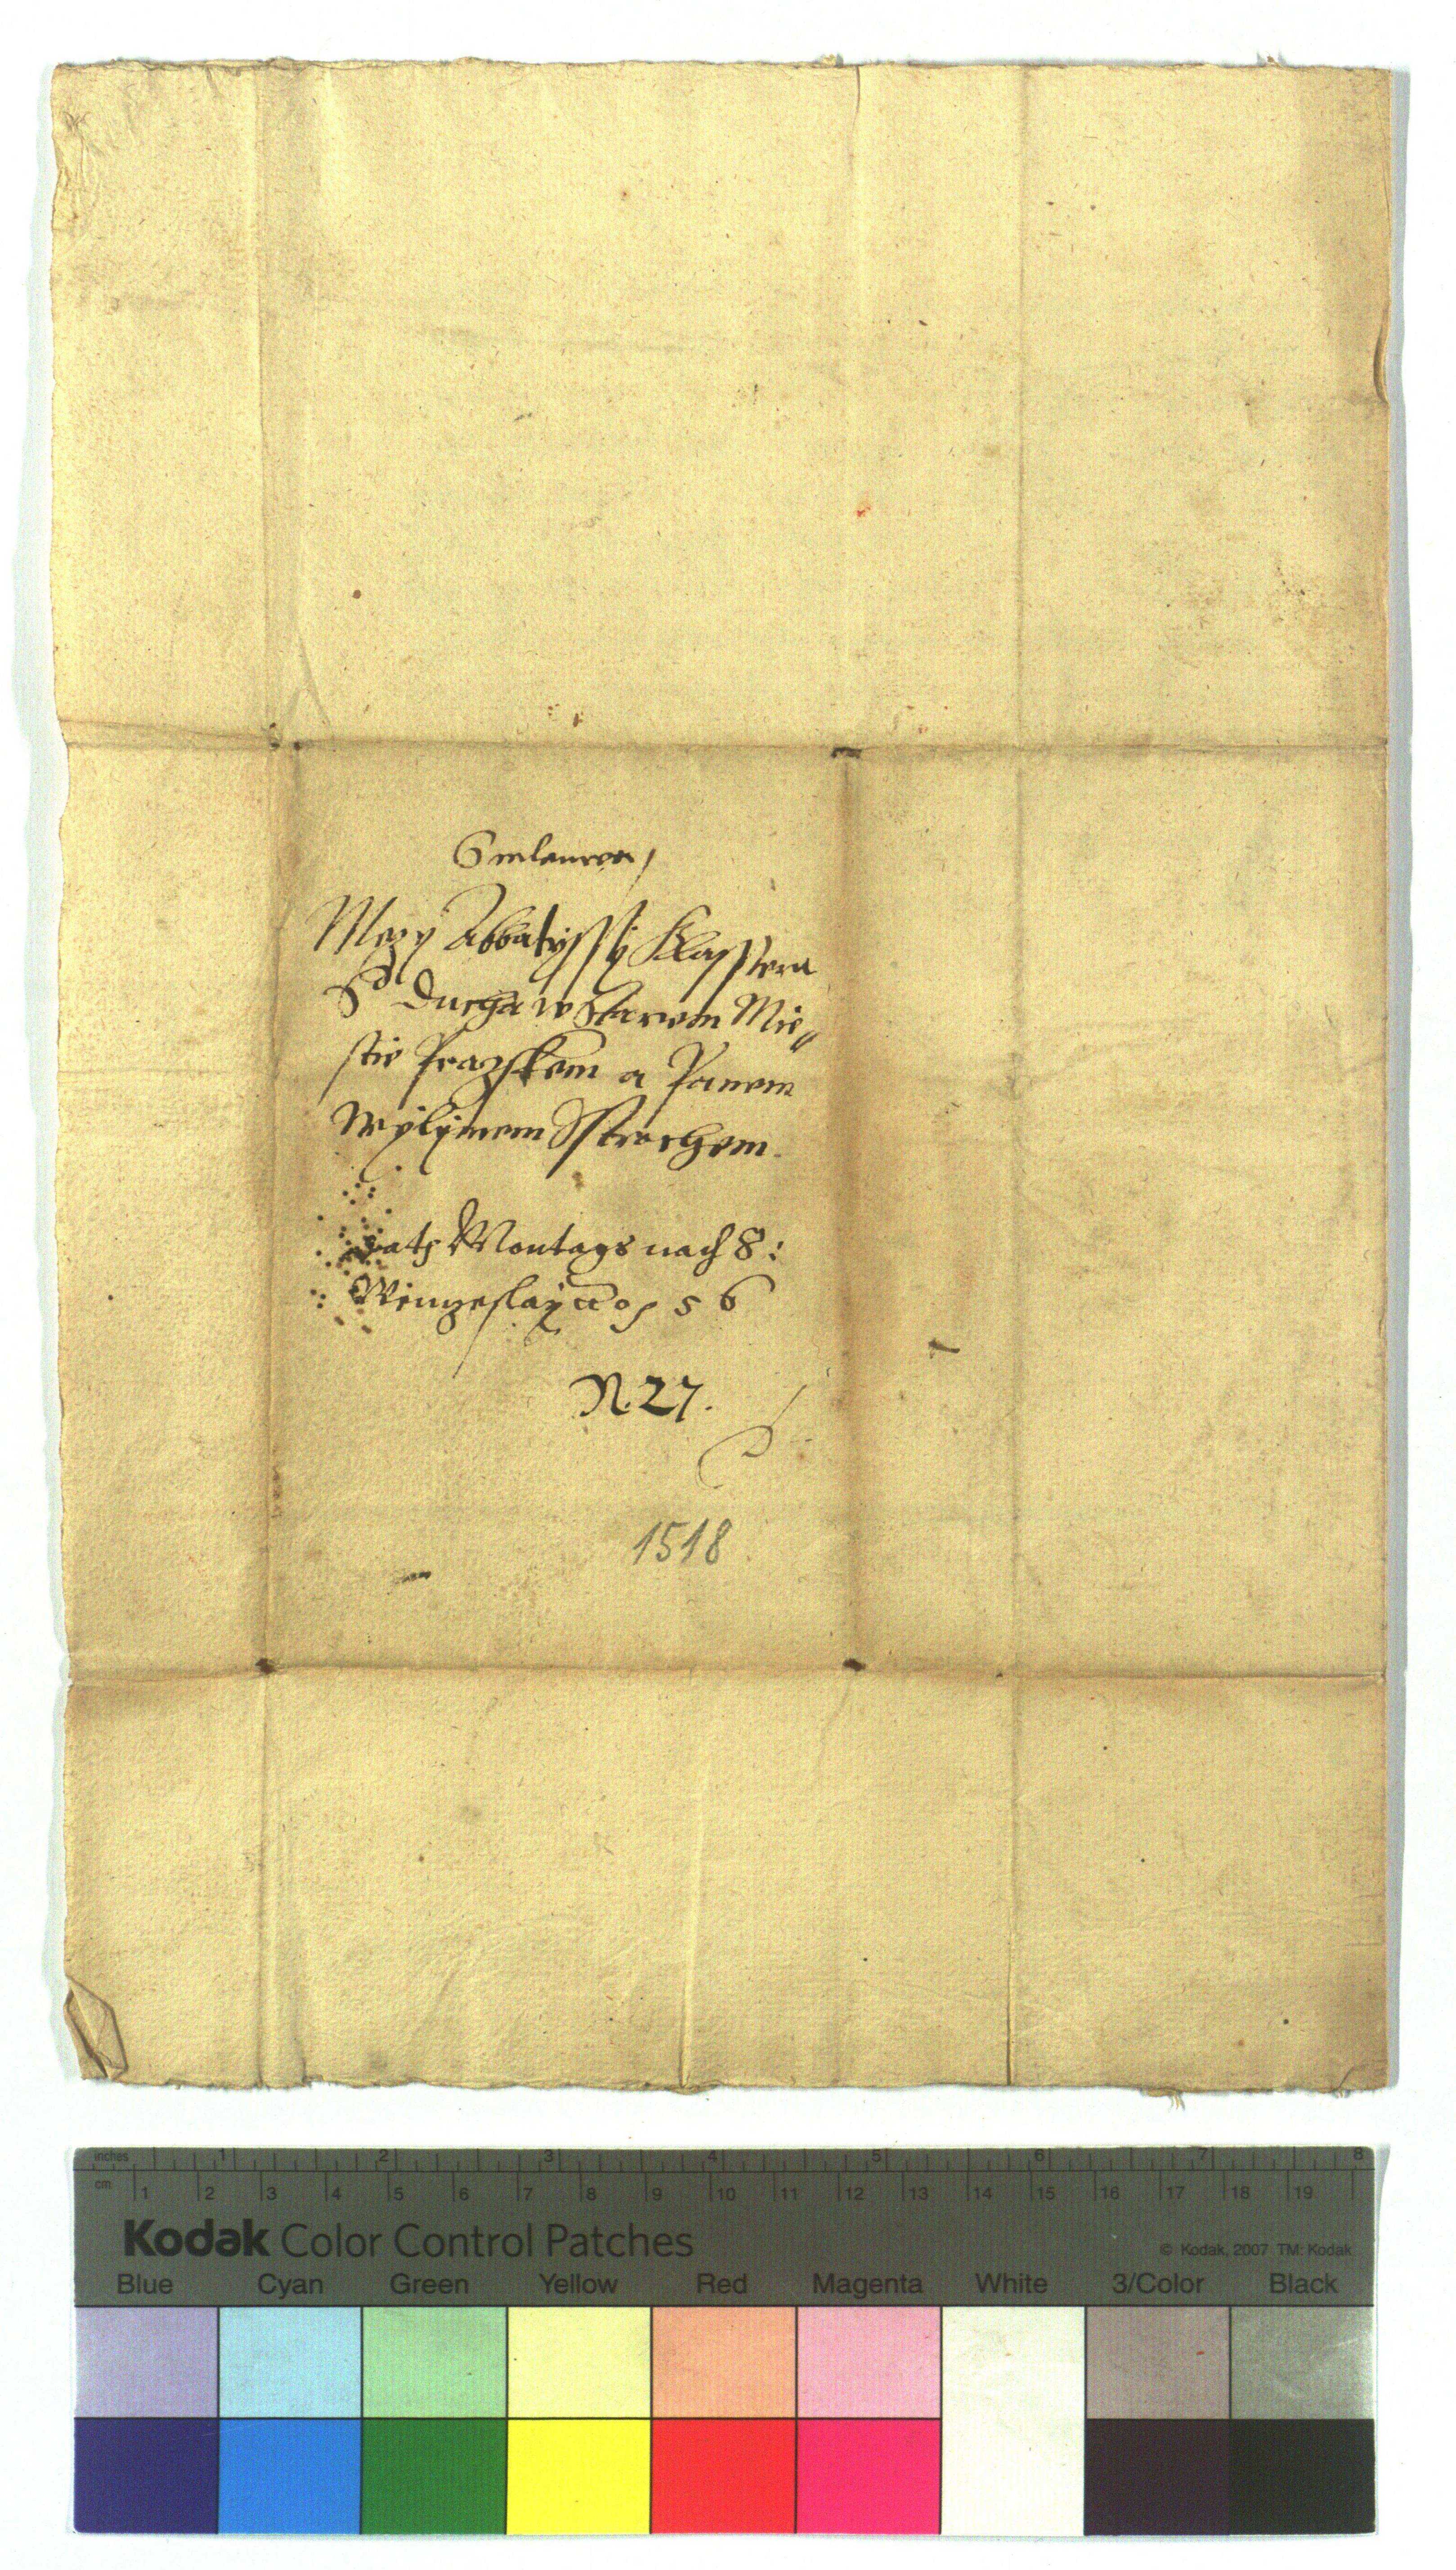 Smlauwa
Mezy Abbatyssy Klasstera
Sd Ducha w Starem Mie„
stie Prazskem a Panem
Wylymem Sstiechem.
dats Montags nach S:
Wenzeslay ao 56
N. 27.
1518
inches 1 2 3 4 5 6 7 8
cm 1 2 3 4 5 6 7 8 9 10 11 12 13 14 15 16 17 18 19
Kodak Color Control Patches
© Kodak, 2007 TM: Kodak
Blue Cyan Green Yellow Red Magenta White 3/Color Black